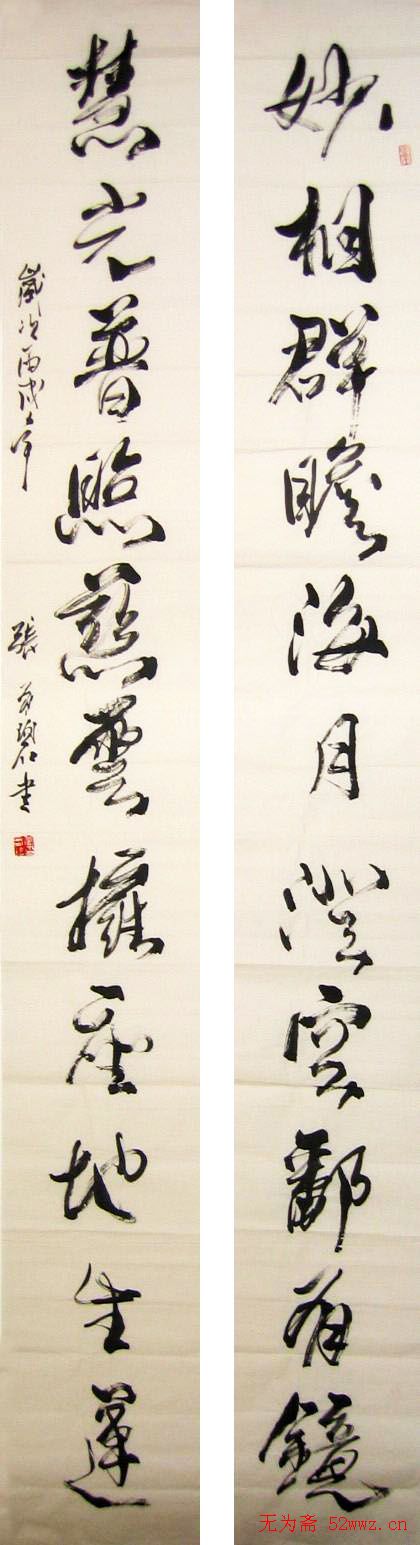 妙相群瞻海月澄空鄱有鏡
慧光普照慈雲擁座地生蓮
歲次丙戌年
張 書
无为斋 52wwz.cn